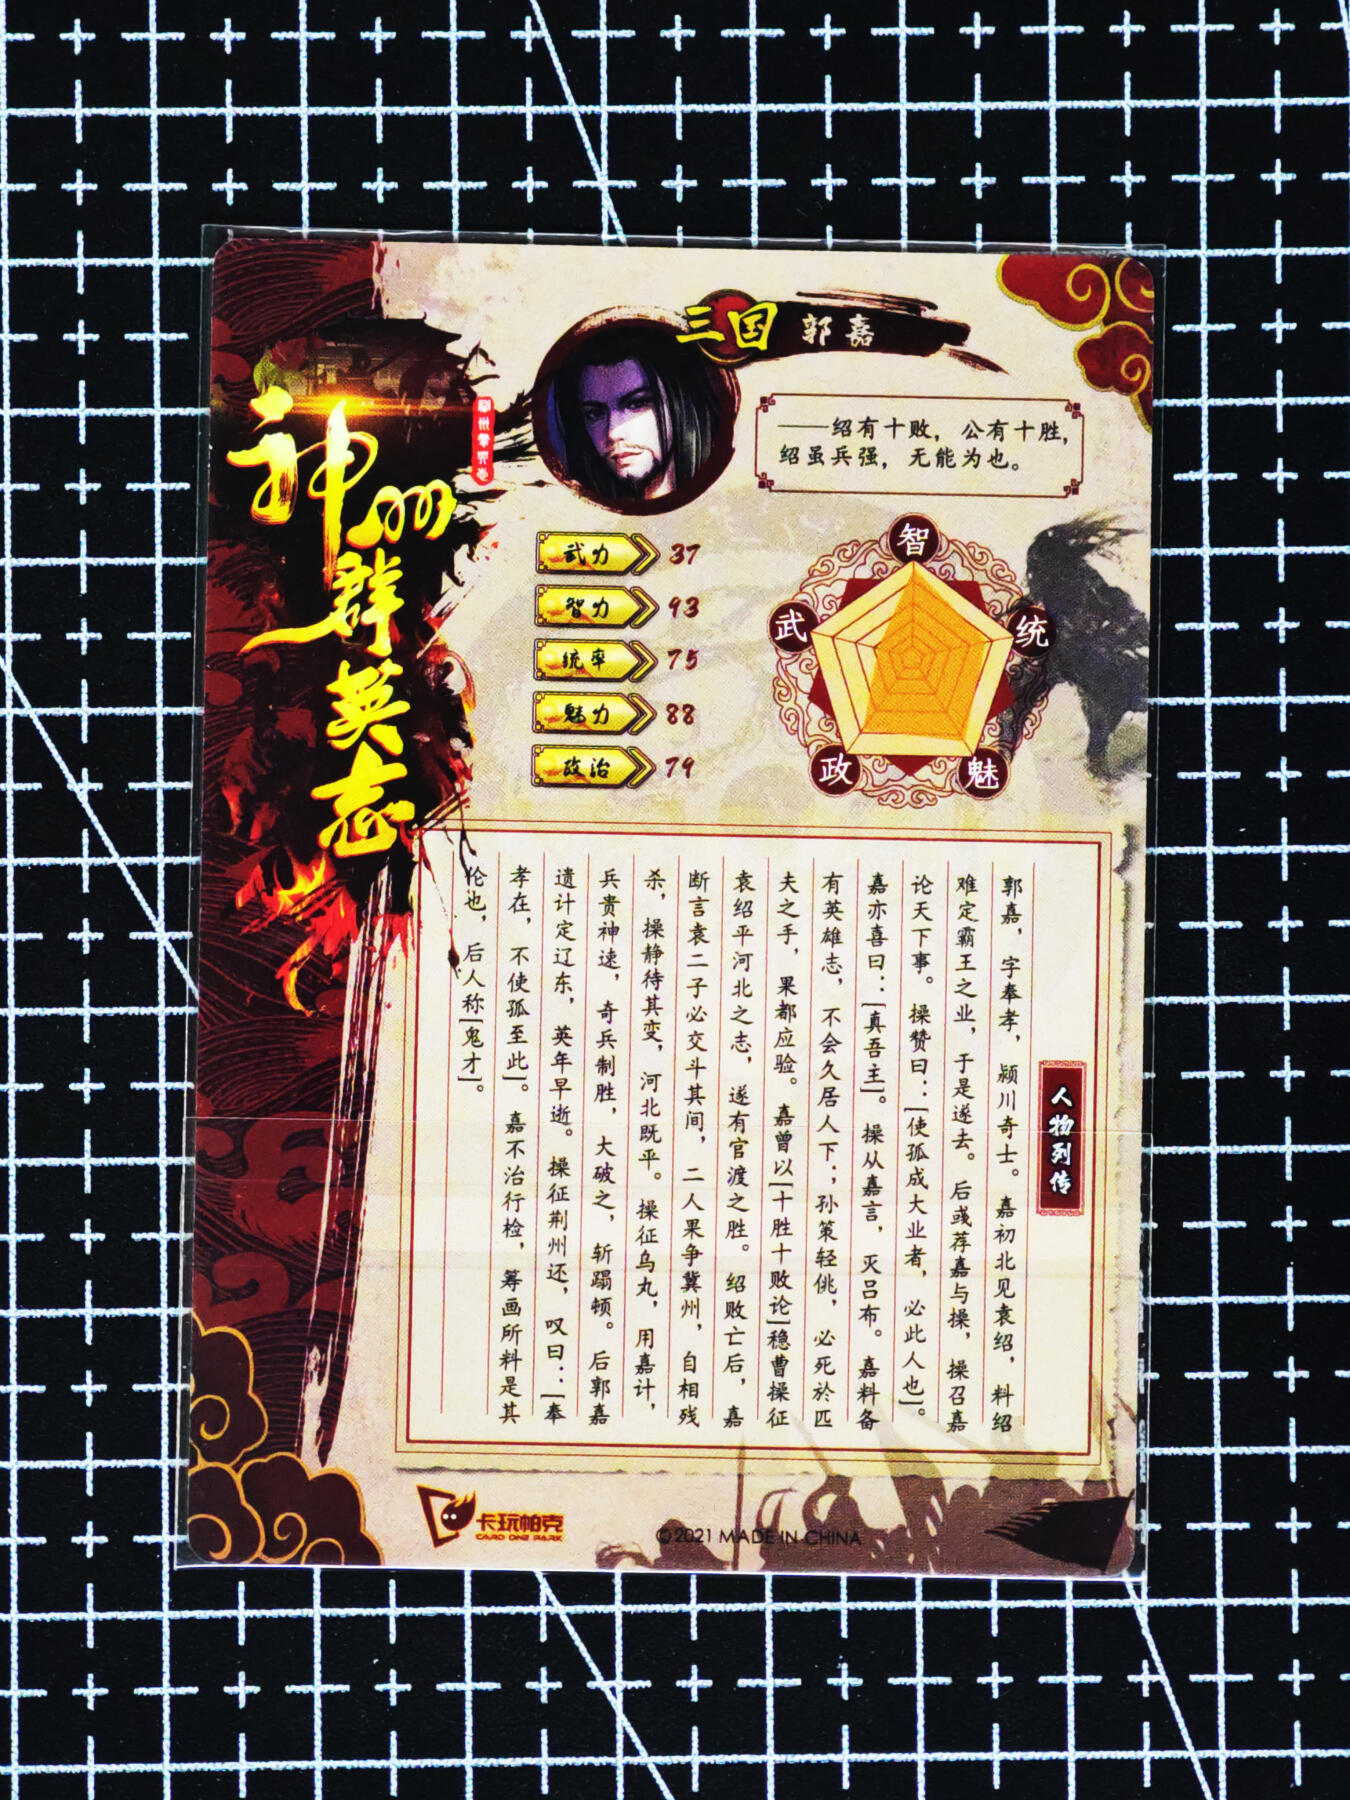 三国 郭嘉
神州群英志
——绍有十败，公有十胜，
绍虽兵强，无能为也。
武力 37
智力 93
统率 75
魅力 88
政治 79
智
武
统
政
魅
人物列传
郭嘉，字奉孝，颍川奇士。嘉初北见袁绍，料绍
难定霸王之业，于是遂去。后彧荐嘉与操，操召嘉
论天下事。操赞曰：[使孤成大业者，必此人也]。
嘉亦喜曰：[真吾主]。操从嘉言，灭吕布。嘉料备
有英雄志，不会久居人下；孙策轻佻，必死於匹
夫之手，果都应验。嘉曾以[十胜十败论]稳曹操征
袁绍平河北之志，遂有官渡之胜。绍败亡后，嘉
断言袁二子必交斗其间，二人果争冀州，自相残
杀，操静待其变，河北既平。操征乌丸，用嘉计，
兵贵神速，奇兵制胜，大破之，斩蹋顿。后郭嘉
遗计定辽东，英年早逝。操征荆州还，叹曰：[奉
孝在，不使孤至此]。嘉不治行检，筹画所料是其
伦也，后人称[鬼才]。
卡玩帕克
CARD ONE PARK
©2021 MADE IN CHINA